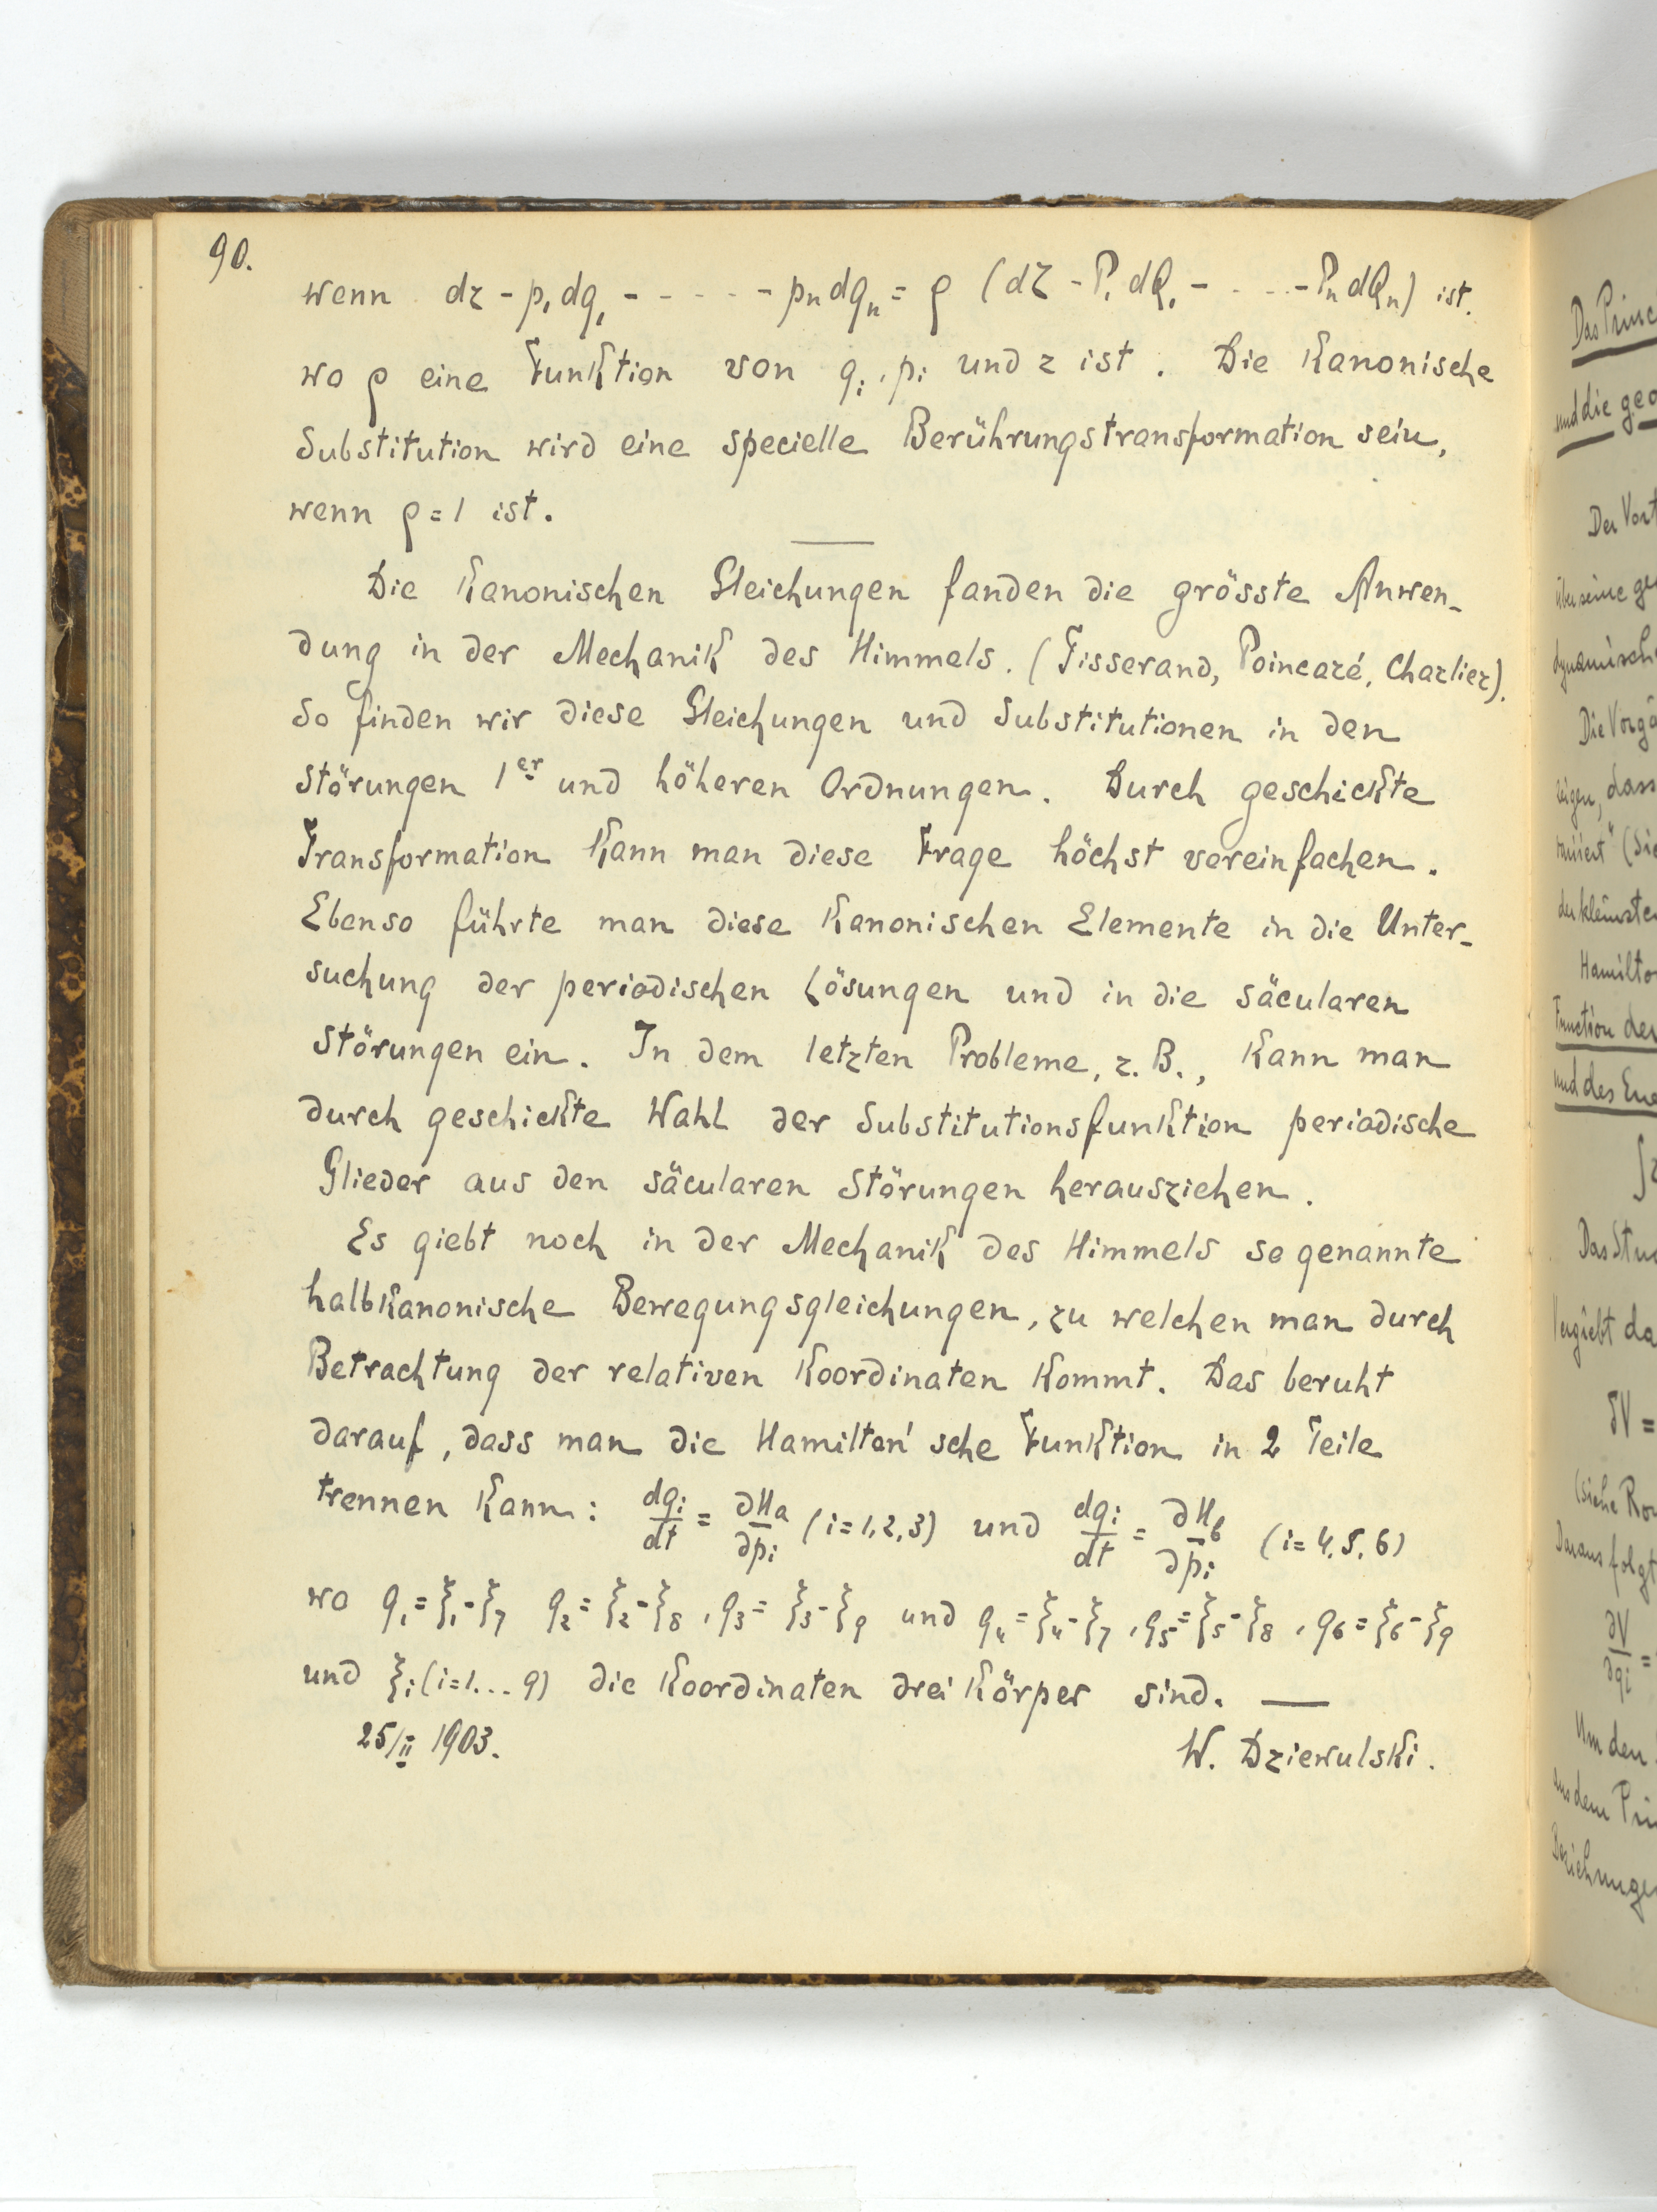 90.
wenn dz - p₁dq₁ - - - - - - pₙdqₙ = ρ (dZ - P₁dQ₁ - . . . - PₙdQₙ) ist.
wo ρ eine Funktion von qᵢ, pᵢ und z ist. Die Kanonische
Substitution wird eine specielle Berührungstransformation sein,
wenn ρ = 1 ist.
Die Kanonischen Gleichungen fanden die grösste Anwen-
dung in der Mechanik des Himmels. (Tisserand, Poincaré, Charlier).
So finden wir diese Gleichungen und Substitutionen in den
Störungen 1er und höheren Ordnungen. Durch geschickte
Transformation Kann man diese Frage höchst vereinfachen.
Ebenso führte man diese Kanonischen Elemente in die Unter-
suchung der periodischen Lösungen und in die säcularen
Störungen ein. In dem letzten Probleme, z. B., Kann man
durch geschickte Wahl der Substitutionsfunktion periodische
Glieder aus den säcularen Störungen herausziehen.
Es giebt noch in der Mechanik des Himmels so genannte
halbkanonische Bewegungsgleichungen, zu welchen man durch
Betrachtung der relativen Koordinaten Kommt. Das beruht
darauf, dass man die Hamilton'sche Funktion in 2 Teile
trennen Kann: dqᵢ/dt = ∂Ha/∂pᵢ (i=1,2,3) und dqᵢ/dt = ∂Hb/∂pᵢ (i=4,5,6)
wo q₁=ξ₁-ξ₇ q₂=ξ₂-ξ₈, q₃=ξ₃-ξ₉ und q₄=ξ₄-ξ₇, q₅=ξ₅-ξ₈, q₆=ξ₆-ξ₉
und ξᵢ (i=1...9) die Koordinaten drei Körper sind. —
25/II 1903.
W. Dziewulski.
Das Princ
und die geo
Der Vort
über seine ge
dynamisch
Die Vorgä
zeigen, dass
der kleinste
Hamilto
Function der
und des Ene
∫2
Das Stu
ergiebt da
δV =
(siehe Rou
Daraus folgt
∂V/∂qi =
Um den
aus dem Pri
Beziehunge